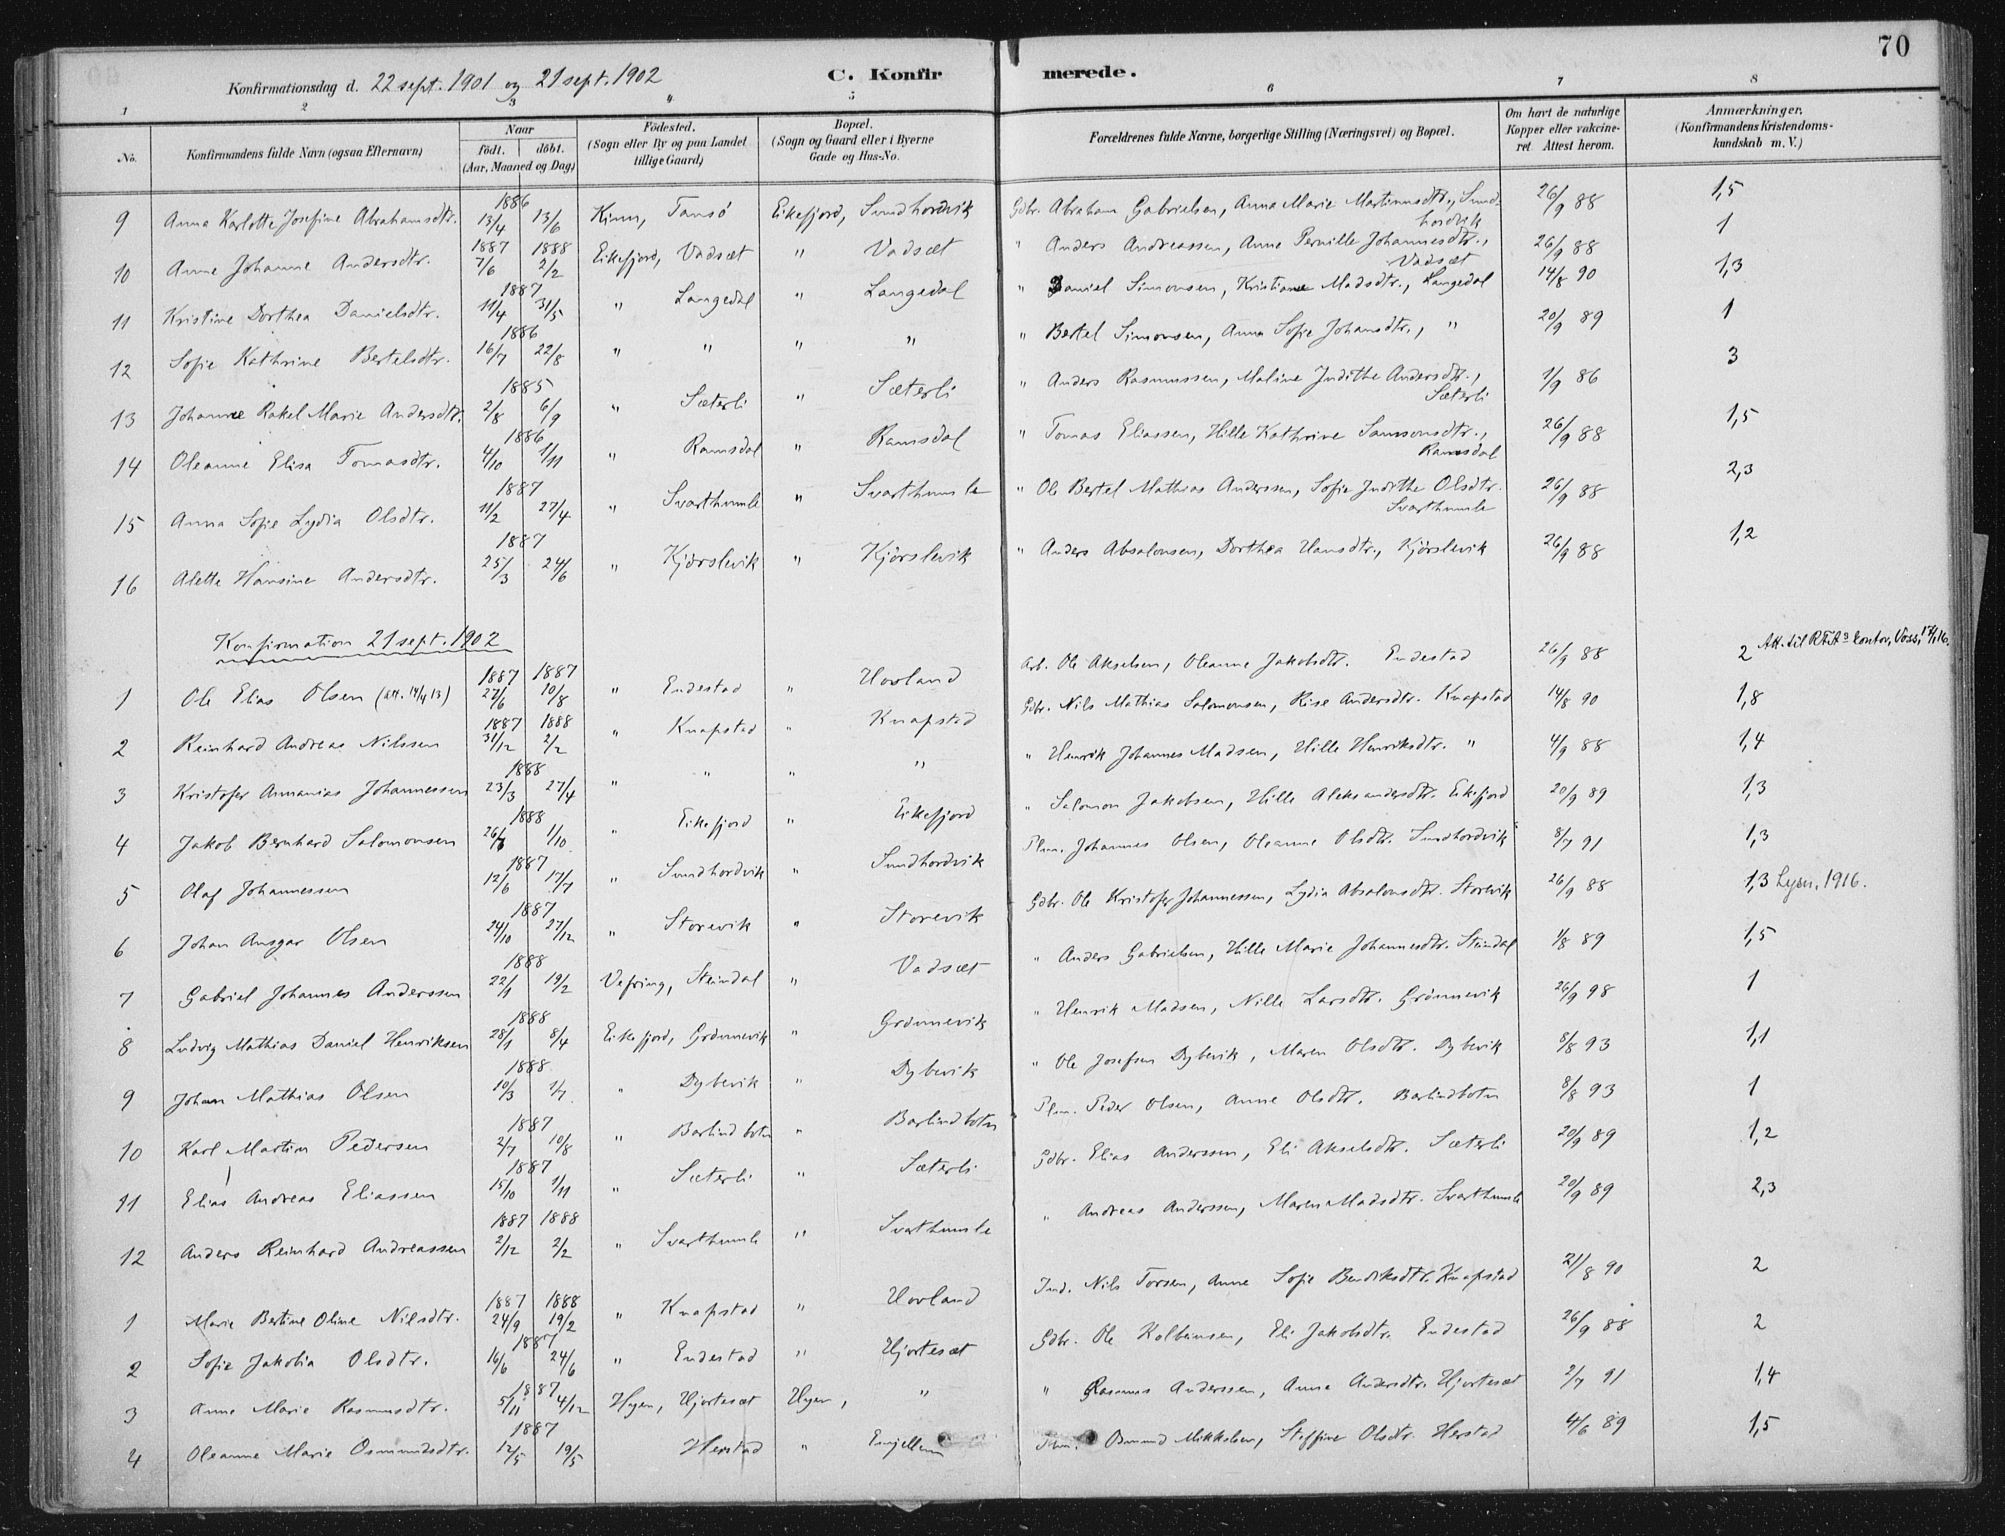 70
Konfirmationsdag d. 22 sept. 1901 og 21 sept. 1902 C. Konfirmerede.
1 2 3 4 5 6 7 8
No. Konfirmandens fulde Navn (ogsaa Efternavn) Naar födt. döbt. (Aar, Maaned og Dag) Födested. (Sogn eller By og paa Landet tillige Gaard) Bopæl. (Sogn og Gaard eller i Byerne Gade og Hus-No. Forældrenes fulde Navne, borgerlige Stilling (Næringsvei) og Bopæl. Om havt de naturlige Kopper eller vakcineret Attest herom. Anmærkninger. (Konfirmandens Kristendomskundskab m. V.)
9 Anna Karlotte Josefine Abrahamsdtr. 1886 13/4 13/6 Kinn, Tansö Eikefjord, Sundhordvik Gdbr. Abraham Gabrielsen, Anna Marie Martinusdtr., Sundhordvik 26/9 88 1,5
10 Anne Johanne Andersdtr. 1887 7/6 1888 2/2 Eikefjord, Vadsæt " Vadsæt " Anders Andreassen, Anne Pernille Johannesdtr., Vadsæt 26/9 88 1
11 Kristine Dorthea Danielsdtr. 1887 11/4 31/5 " Langedal " Langedal " Daniel Simonsen, Kristiane Madsdtr., Langedal 14/8 90 1,3
12 Sofie Kathrine Bertelsdtr. 1886 16/7 22/8 " " " " " Bertel Simonsen, Anna Sofie Johansdtr., " 20/9 89 1
13 Johanne Rakel Marie Andersdtr. 1885 2/8 6/9 " Sæterli " Sæterli " Anders Rasmussen, Maline Judithe Andersdtr., Sæterli 1/9 86 3
14 Oleanne Elisa Tomasdtr. 1886 4/10 1/11 " Ramsdal " Ramsdal " Tomas Eliassen, Hille Kathrine Samsonsdtr., Ramsdal 26/9 88 1,5
15 Anna Sofie Lydia Olsdtr. 1887 11/2 27/4 " Svarthumle " Svarthumle " Ole Bertel Mathias Anderssen, Sofie Judithe Olsdtr. Svarthumle 26/9 88 2,3
16 Alette Hansine Andersdtr. 1887 25/3 24/6 " Kjörslevik " Kjörslevik " Anders Absalonsen, Dorthea Hansdtr., Kjörslevik 26/9 88 1,2
Konfirmation 21 sept. 1902
1 Ole Elias Olsen (att. 14/4 13) 1887 27/6 1887 10/8 " Endestad " Hovland Arb. Ole Akselsen, Oleanne Jakobsdtr. Endestad 26/9 88 2 Att. til kontor, Voss, 17/1 16.
2 Reinhard Andreas Nilssen 1887 31/12 1888 2/2 " Knapstad " Knapstad Gdbr. Nils Mathias Salomonsen, Rise Andersdtr. Knapstad 14/8 90 1,8
3 Kristofer Annanias Johannessen 1888 23/3 27/4 " " " " " Henrik Johannes Madsen, Hille Henriksdtr. " 4/9 88 1,4
4 Jakob Bernhard Salomonsen 1888 26/8 1/10 " Eikefjord " Eikefjord " Salomon Jakobsen, Hille Aleksandersdtr. Eikefjord 20/9 89 1,3
5 Olaf Johannessen 1887 12/6 17/7 " Sundhordvik " Sundhordvik Plm. Johannes Olsen, Oleanne Olsdtr. Sundhordvik 8/7 91 1,3
6 Johan Ansgar Olsen 1887 24/10 27/12 " Storevik " Storevik Gdbr. Ole Kristofer Johannessen, Lydia Absalonsdtr. Storevik 26/9 88 1,3 Lysn. 1916.
7 Gabriel Johannes Anderssen 1888 22/1 19/2 Vefring, Steindal " Vadsæt " Anders Gabrielsen, Hille Marie Johannesdtr. Steindal 1/8 89 1,5
8 Ludvig Mathias Daniel Henriksen 1888 28/1 8/4 Eikefjord, Grönnevik " Grönnevik " Henrik Madsen, Nille Larsdtr. Grönnevik 26/9 98 1
9 Johan Mathias Olsen 1888 10/3 1/7 " Dybevik " Dybevik " Ole Josefsen Dybevik, Maren Olsdtr. Dybevik 8/8 93 1,1
10 Karl Martin Pedersen 1887 2/7 10/8 " Barlindbotn " Barlindbotn Plm. Peder Olsen, Anne Olsdtr. Barlindbotn 8/8 93 1
11 Elias Andreas Eliassen 1887 15/10 1/11 " Sæterli " Sæterli Gdbr. Elias Anderssen, Eli Akselsdtr. Sæterli 20/9 89 1,2
12 Anders Reinhard Andreassen 1887 2/12 1888 2/2 " Svarthumle " Svarthumle " Andreas Anderssen, Maren Madsdtr. Svarthumle 20/9 89 2,3
1 Marie Bertine Oline Nilsdtr. 1887 24/9 1888 19/2 " Knapstad " Hovland Ind. Nils Torsen, Anne Sofie Bendiksdtr. Knapstad 21/8 90 2
2 Sofie Jakobia Olsdtr. 1887 16/6 24/6 " Endestad " Hjortesæt Gdbr. Ole Kolbeinsen, Eli Jakobsdtr. Endestad 26/9 88 2
3 Anne Marie Rasmusdtr. 1887 5/11 4/12 Hyen, Hjortesæt Hyen, " " Rasmus Anderssen, Anna Andersdtr. Hjortesæt 2/7 91 1,4
4 Oleanne Marie Osmundsdtr. 1887 12/5 19/5 Herstad " Plm. Mikkelsen, Steffine Olsdtr. Herstad 4/6 89 1,5